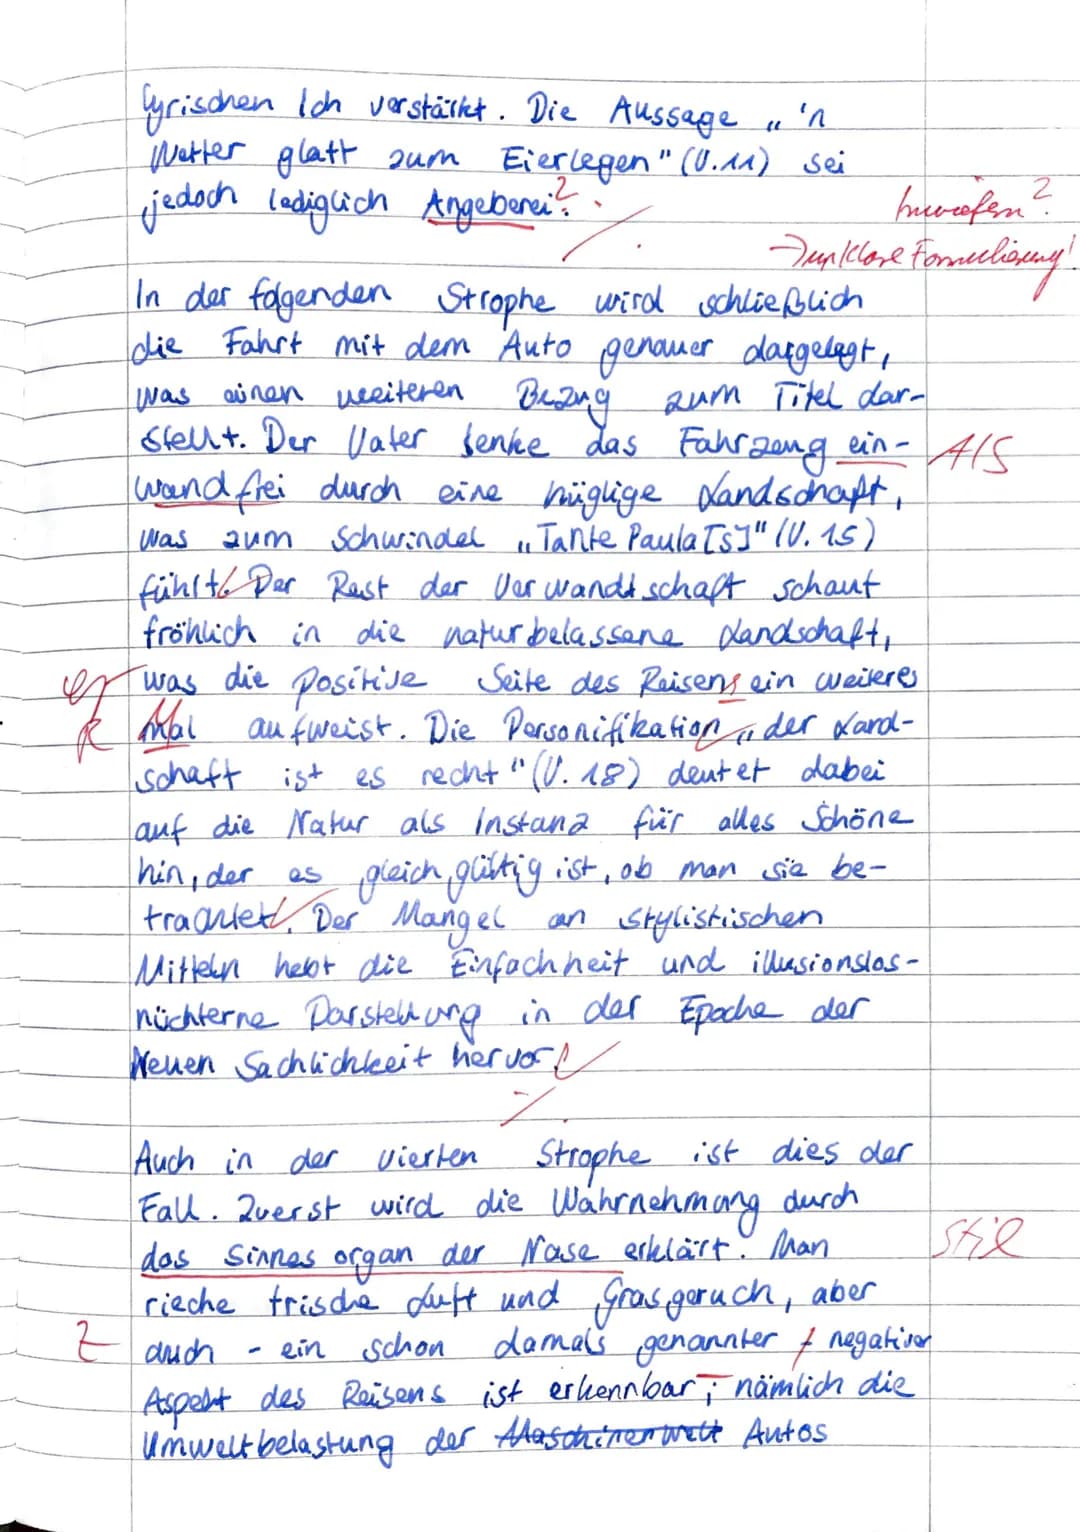 lyrischen Ich verstärkt. Die Aussage „'n
Wetter glatt zum Eierlegen" (V.11) sei
jedoch lediglich Angeberei?.
Inwiefern?
→ unklare Formulierung!
In der folgenden Strophe wird schließlich
die Fahrt mit dem Auto genauer dargelegt,
was einen weiteren Bezug zum Titel dar-
stellt. Der Vater lenke das Fahrzeug ein-
A/S
wandfrei durch eine hüglige Landschaft,
was zum Schwindel „Tante Paula[s]" (V. 15)
fühlt. Der Rest der Verwandtschaft schaut
fröhlich in die naturbelassene Landschaft,
was die positive Seite des Reisens ein weiteres
R Mal aufweist. Die Personifikation „der Land-
schaft ist es recht" (V. 18) deutet dabei
auf die Natur als Instanz für alles Schöne
hin, der es gleichgültig ist, ob man sie be-
trachtet. Der Mangel an stylistischen
Mitteln hebt die Einfachheit und illusionslos-
nüchterne Darstellung in der Epoche der
Neuen Sachlichkeit hervor.
Auch in der vierten Strophe ist dies der
Fall. Zuerst wird die Wahrnehmung durch
das Sinnesorgan der Nase erklärt. Man
Stil
rieche frische Luft und Grasgeruch, aber
Z auch - ein schon damals genannter negativer
Aspekt des Reisens ist erkennbar -, nämlich die
Umweltbelastung der Maschinenwelt Autos